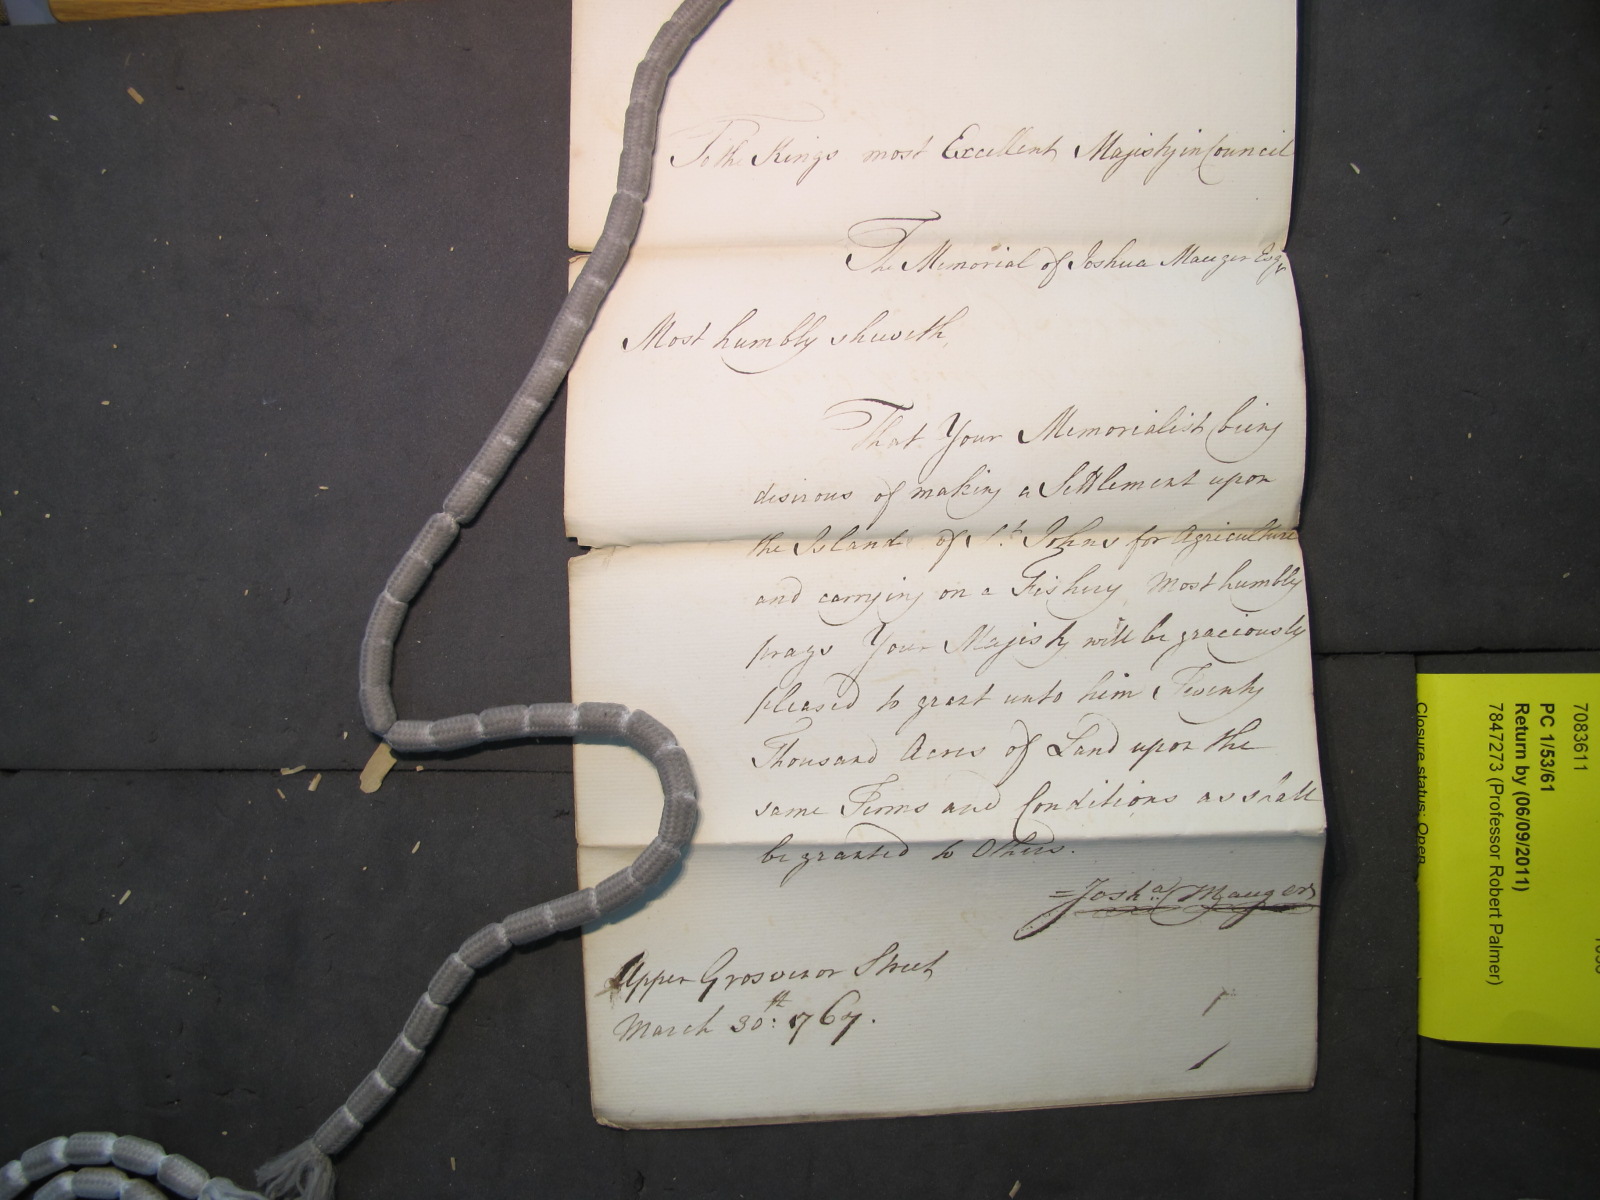 To the Kings most Excellent Majesty in Council
The Memorial of Joshua Mauger Esqr
Most humbly sheweth,
That Your Memorialist being
desirous of making a Settlement upon
the Island of St. Johns for Agriculture
and carrying on a Fishery, Most humbly
prays Your Majesty will be graciously
pleased to grant unto him Twenty
Thousand Acres of Land upon the
same Terms and Conditions as shall
be granted to Others.
Josha. Mauger
Upper Grosvenor Street
March 30th: 1767.
7083611
PC 1/53/61
Return by (06/09/2011)
7847273 (Professor Robert Palmer)
Closure status: Open